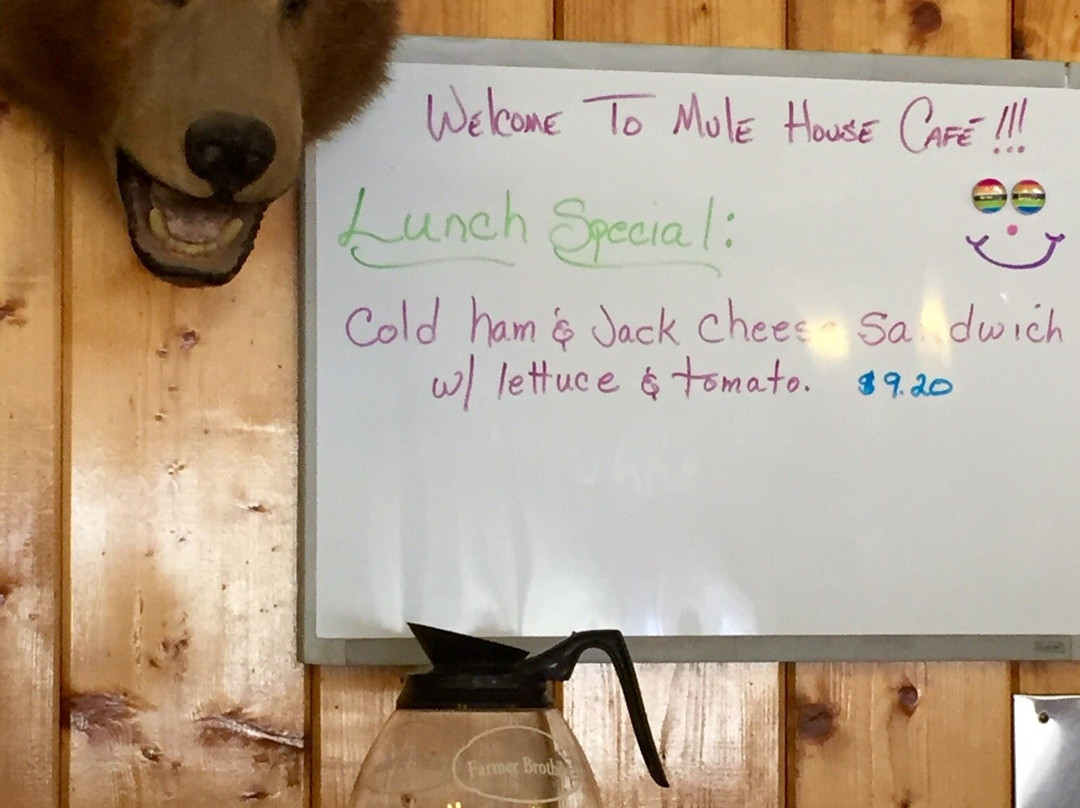 Welcome To Mule House Café!!!
Lunch Special:
Cold ham & Jack Cheese Sandwich
w/ lettuce & tomato. $9.20
Farmer Broth